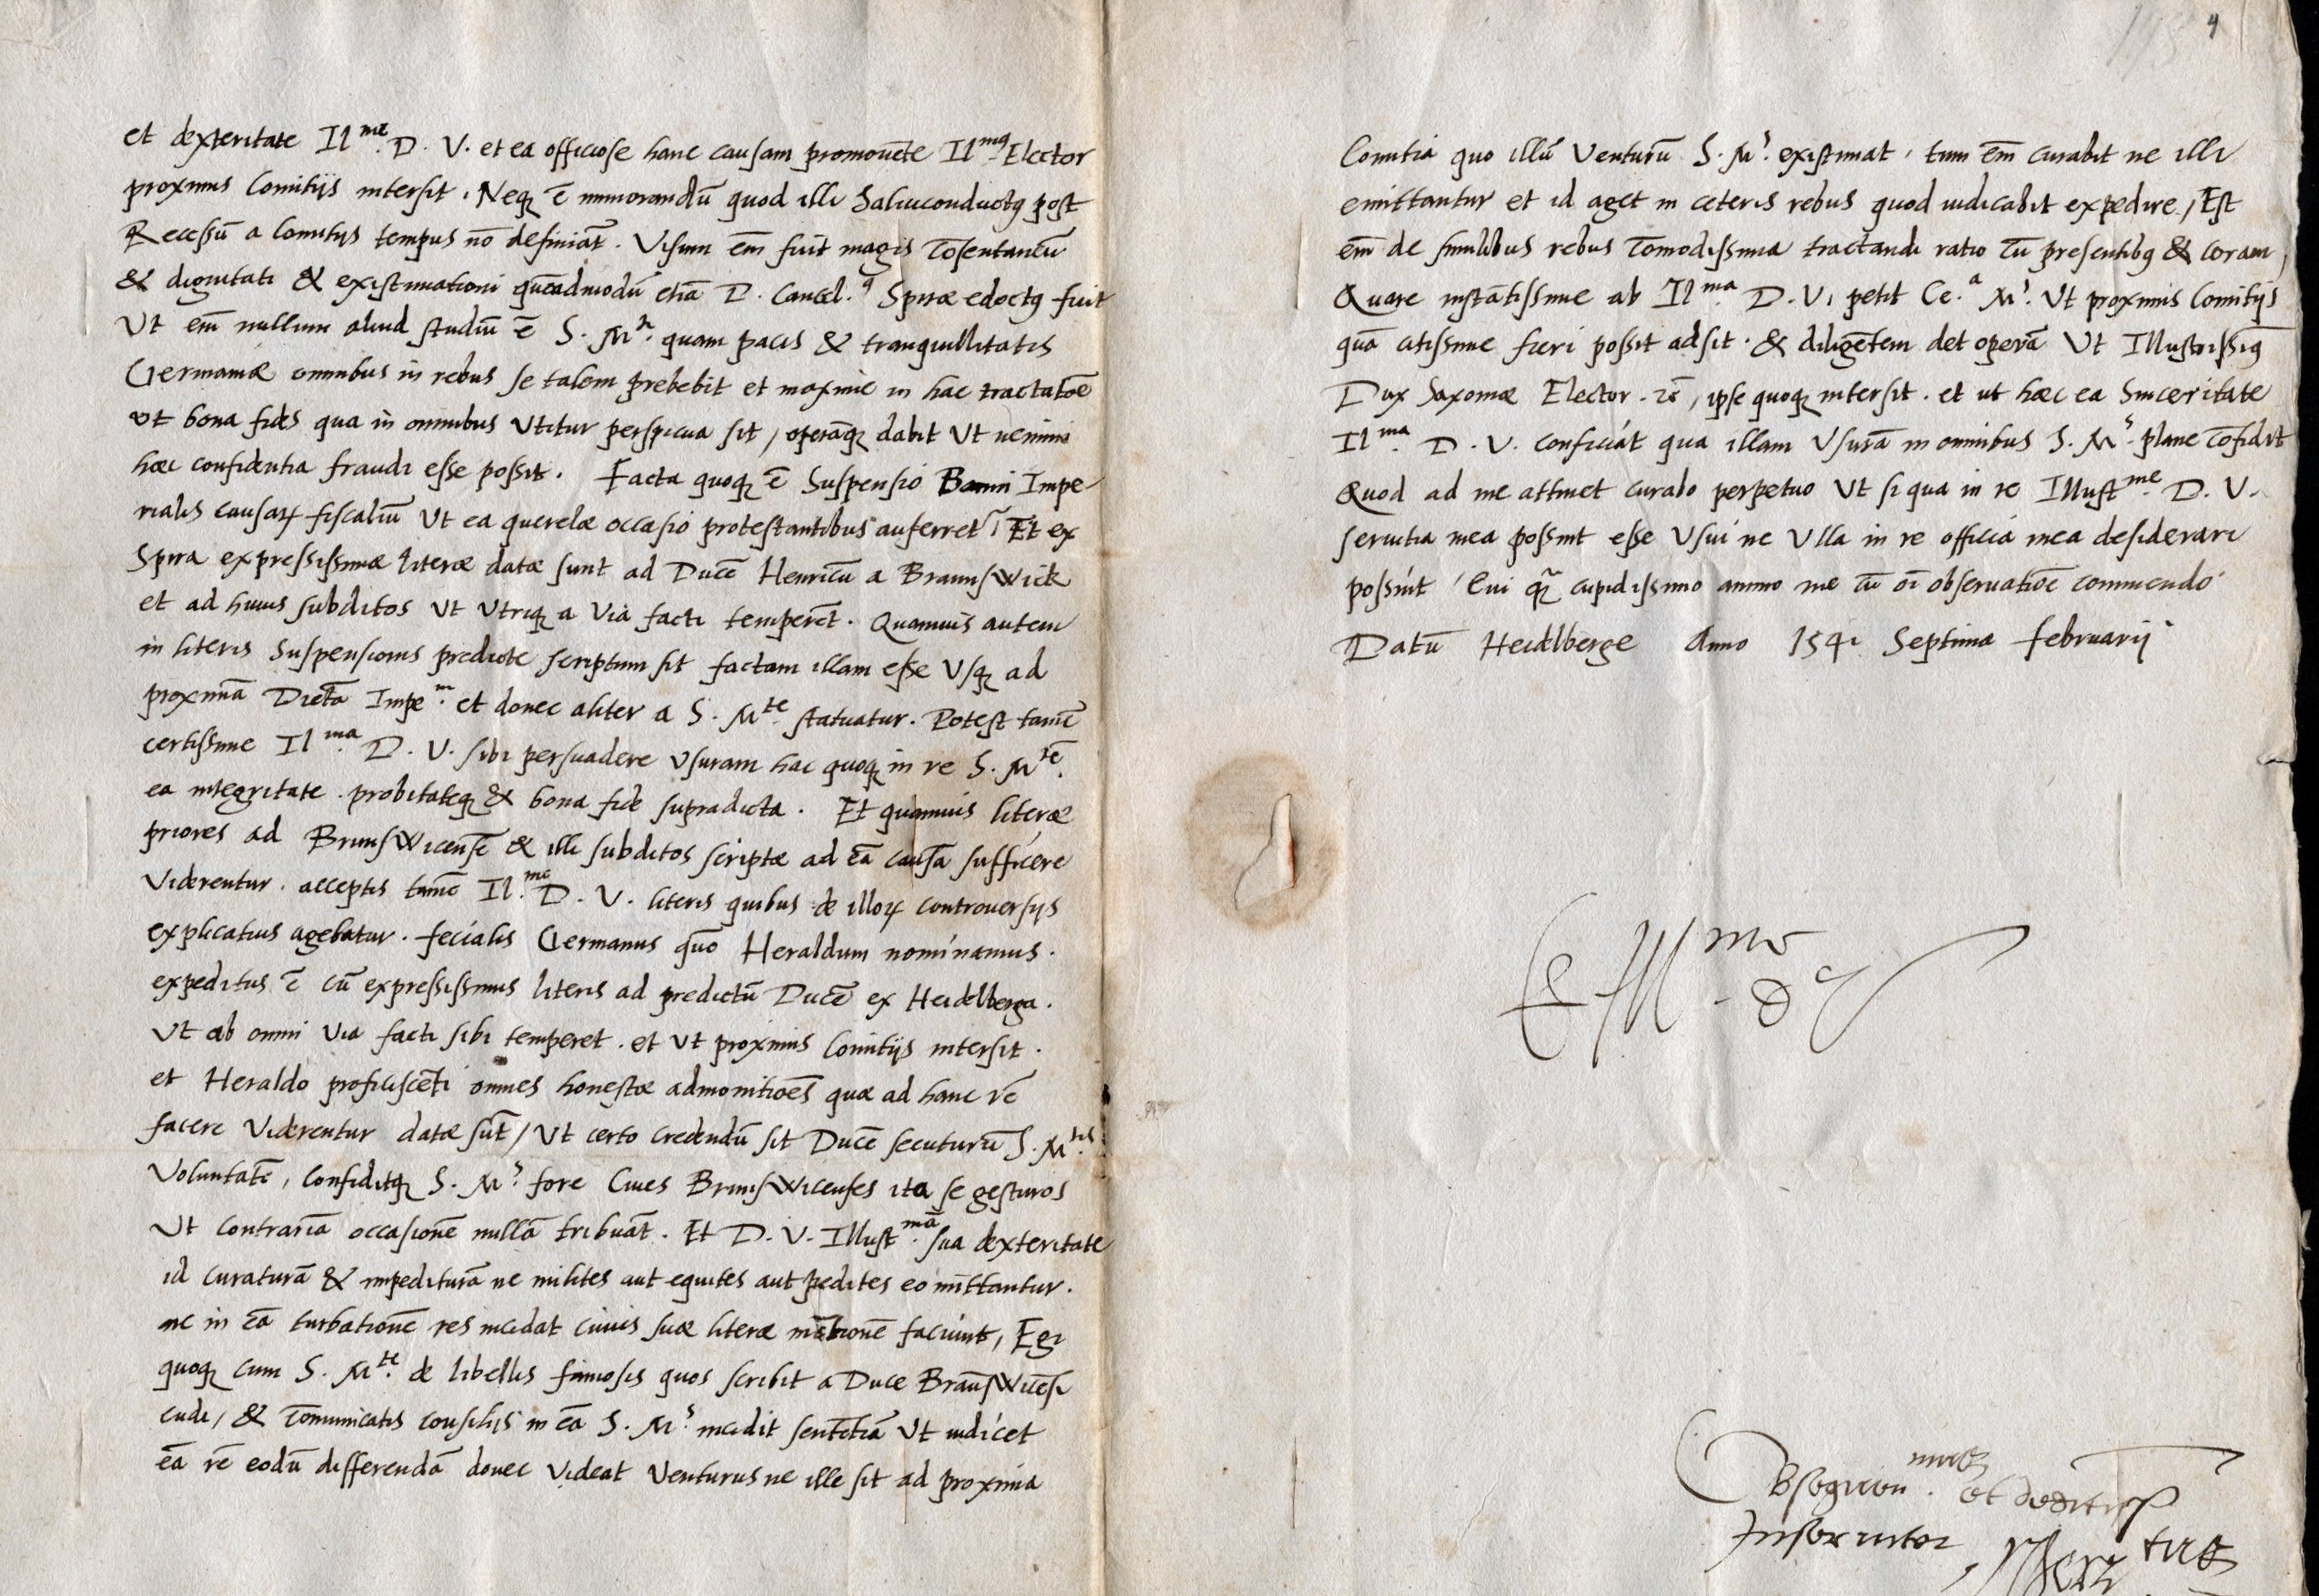 et dexteritate Il.me D. V. et ea officiose hanc causam promovēte Il.mꝰ Elector
proximis Comitijs intersit. Neqꝫ ē mirorandū quod illi Salviconductꝰ post
Recessū a Comitijs tempus nō definiāt. Visum em̄ fuit magis cōsentaneū
& dignitati & existimationi quēadmodū etiā D. Cancel.ꝰ Spirae edoctꝰ fuit
Ut em̄ nullum aliud studiū ē S. M.ti quam pacis & tranquillitatis
Germaniæ omnibus in rebus se talem prebebit et maxime in hac tractatōe
ut bona fides qua in omnibus Utitur perspicua sit, operāqꝫ dabit Ut nemini
hæc confidentia fraudi esse possit. Facta quoqꝫ ē Suspensio Banni Impe-
rialis causaꝝ fiscaliū Ut ea querelæ occasio protestantibus auferret̃, Et ex
Spira expressissimæ literæ datæ sunt ad Ducē Henricū a BraunsWick
et ad huius subditos Ut Utriqꝫ a Via facti temperēt. Quamuis autem
in literis Suspensionis predicte scriptum sit factam illam esse Usqꝫ ad
proximā Dietā Impe.m et donec aliter a S. M.te statuatur. Potest tamē
certissime Il.ma D. V. sibi persuadere Usuram hac quoqꝫ in re S. M.tē
ea integritate. probitateqꝫ & bona fide supradicta. Et quamuis literæ
priores ad BrunsWicensē & illi subditos scriptæ ad eā causā sufficere
Viderentur. acceptis tamē Il.me D. V. literis quibus de illoꝝ controversijs
explicatius agebatur. fecialis Germanus quō Heraldum nominamus.
expeditus ē cū expressissimis literis ad predictū Ducē ex Heidelberga.
Ut ab omni Via facti sibi temperet. et Ut proximis Comitijs intersit.
et Heraldo proficiscēti omnes honestæ admonitiōes quæ ad hanc rē
facere Viderentur datæ sūt, Ut certo credendū sit Ducē secuturū S. M.tis
Voluntatē, Confiditqꝫ S. M.s fore Ciues BrunsWicenses ita se gesturos
Ut contrariā occasionē nullā tribuāt. Et D. V. Illust.mā sua dexteritate
id curaturā & impediturā ne milites aut equites aut pedites eo mīttantur.
ne in eā turbationē res incidat cuius suæ literæ mētionē faciunt, Egi
quoqꝫ cum S. M.te de libellis famosis quos scribit a Duce BraūsWicēsi
cudi, & cōmunicatis consilijs in eā S. M.s incidit sentētiā Ut iudicet
eā rē eodū differendā donec Videat Venturus ne ille sit ad proxima
4
Comitia quo illū Venturū S. M.s existimat. tum em̄ curabit ne illi
emittantur et id aget in ceteris rebus quod iudicabit expedire, Est
em̄ de similibus rebus cōmodissima tractandi ratio cū presentibꝰ & coram,
Quare instātissime ab Il.ma D. V. petit Ce.a M.s Ut proximis Comitijs
quā citissime fieri possit adsit. & diligētem det operā Ut Illustrissimꝰ
Dux Saxoniæ Elector. rē, ipse quoqꝫ intersit. et ut hæc ea Sinceritate
Il.ma D. V. conficiāt qua illam Usurā in omnibus S. M.s plane cōfidit
Quod ad me attinet curabo perpetuo Ut si qua in re Illust.me D. V.
servitia mea possint esse Usui ne Ulla in re officia mea desiderari
possint Cui qr̃ cupidissimo animo me cū oī observatiōe commendo
Datū Heidelberge Anno 1541 Septima februarij
E Ill.me d V
Obsequen.mus et deditus
Inservitor